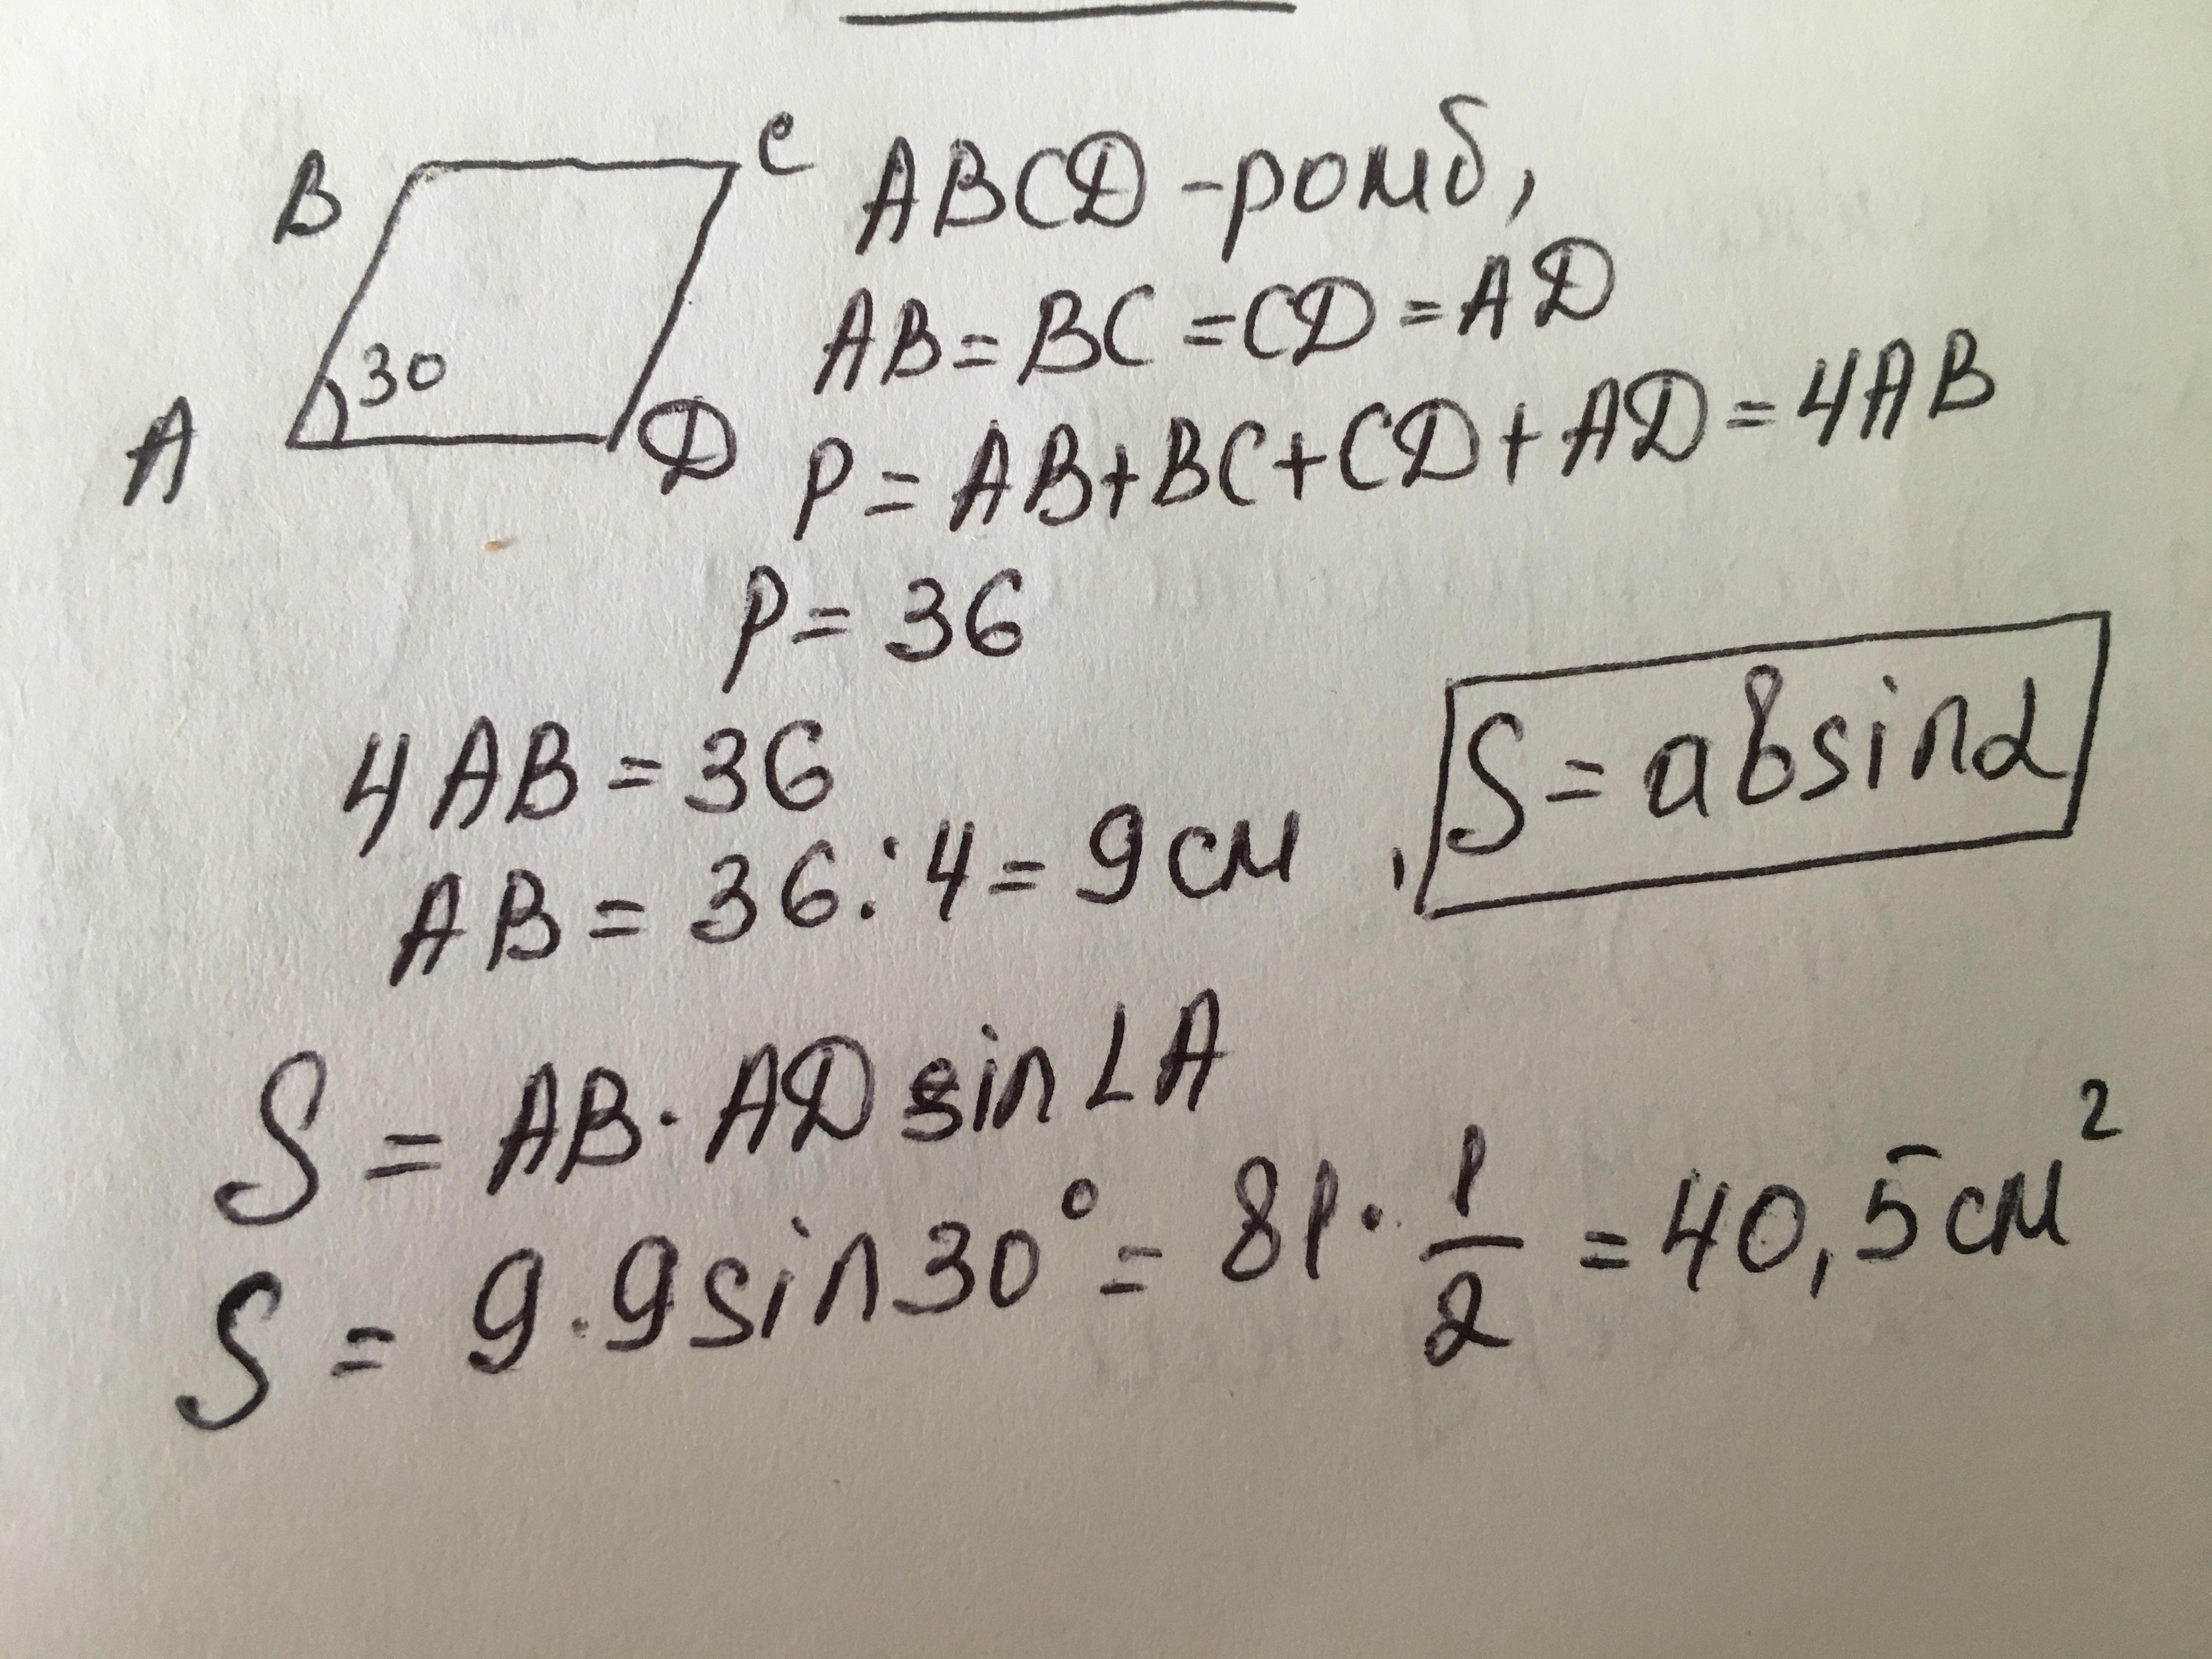 B
C
A
30
D
ABCD - ромб,
AB = BC = CD = AD
P = AB + BC + CD + AD = 4AB
P = 36
4AB = 36
AB = 36 : 4 = 9 см ,
S = ab sin α
S = AB · AD sin ∠A
S = 9 · 9 sin 30° = 81 · 1/2 = 40,5 см²